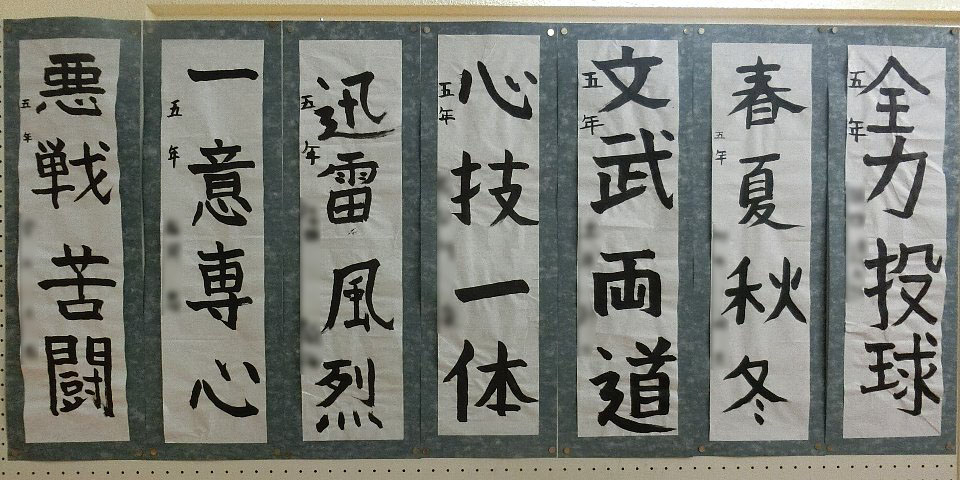 全力投球
五年
春夏秋冬
五年
文武両道
五年
心技一体
五年
迅雷風烈
五年
一意専心
五年
悪戦苦闘
五年